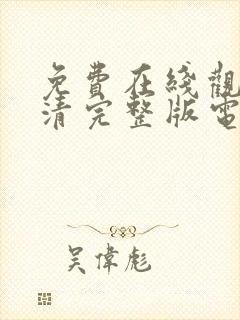 免費在綫觀
清完整版電
吳偉彪